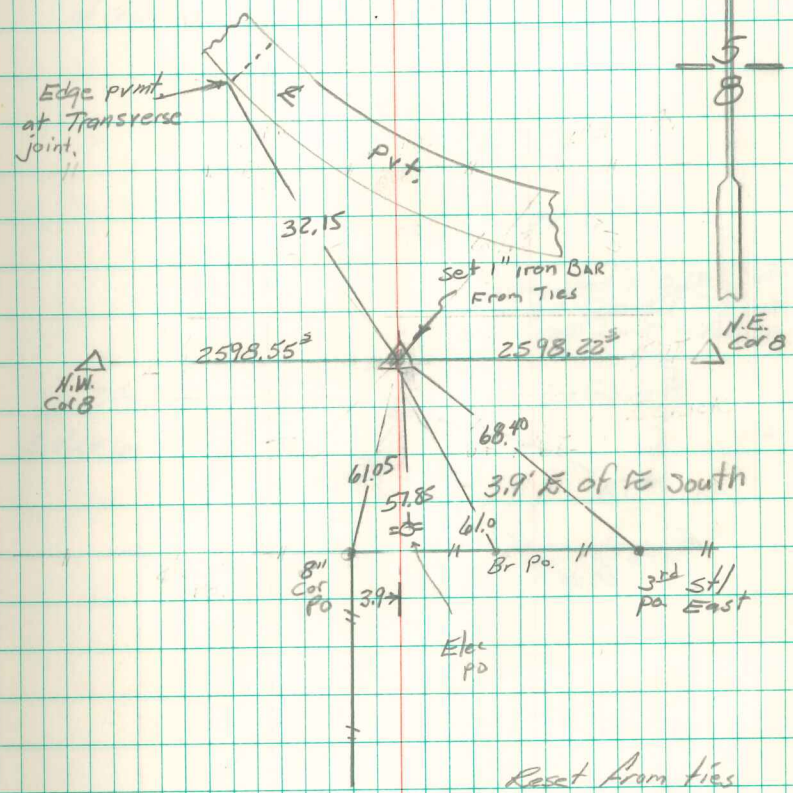 5
8
Edge pvmt.
at Transverse
joint.
Pvt.
32.15
Set 1" iron BAR
From Ties
2598.55ˢ
2598.22ˢ
N.W.
Cor 8
N.E.
Cor 8
68.40
61.05
57.85
61.0
3.9' E of FE South
8"
Cor
Po
3.9
Br Po.
3rd Stl
po East
Elec
po
Reset from ties